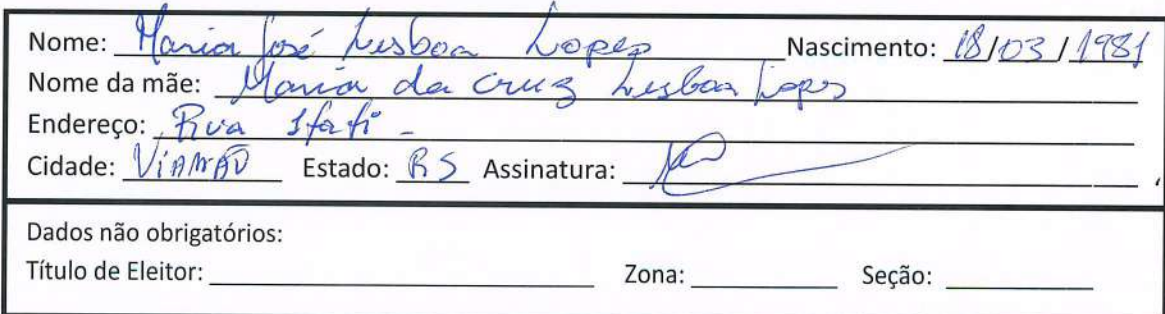 Nome: Maria José Lisboa Lopes Nascimento: 18/03/1981
Nome da mãe: Maria da Cruz Lisboa Lopes
Endereço: Rua
Cidade: Viamão Estado: RS Assinatura:
Dados não obrigatórios:
Título de Eleitor: Zona: Seção: